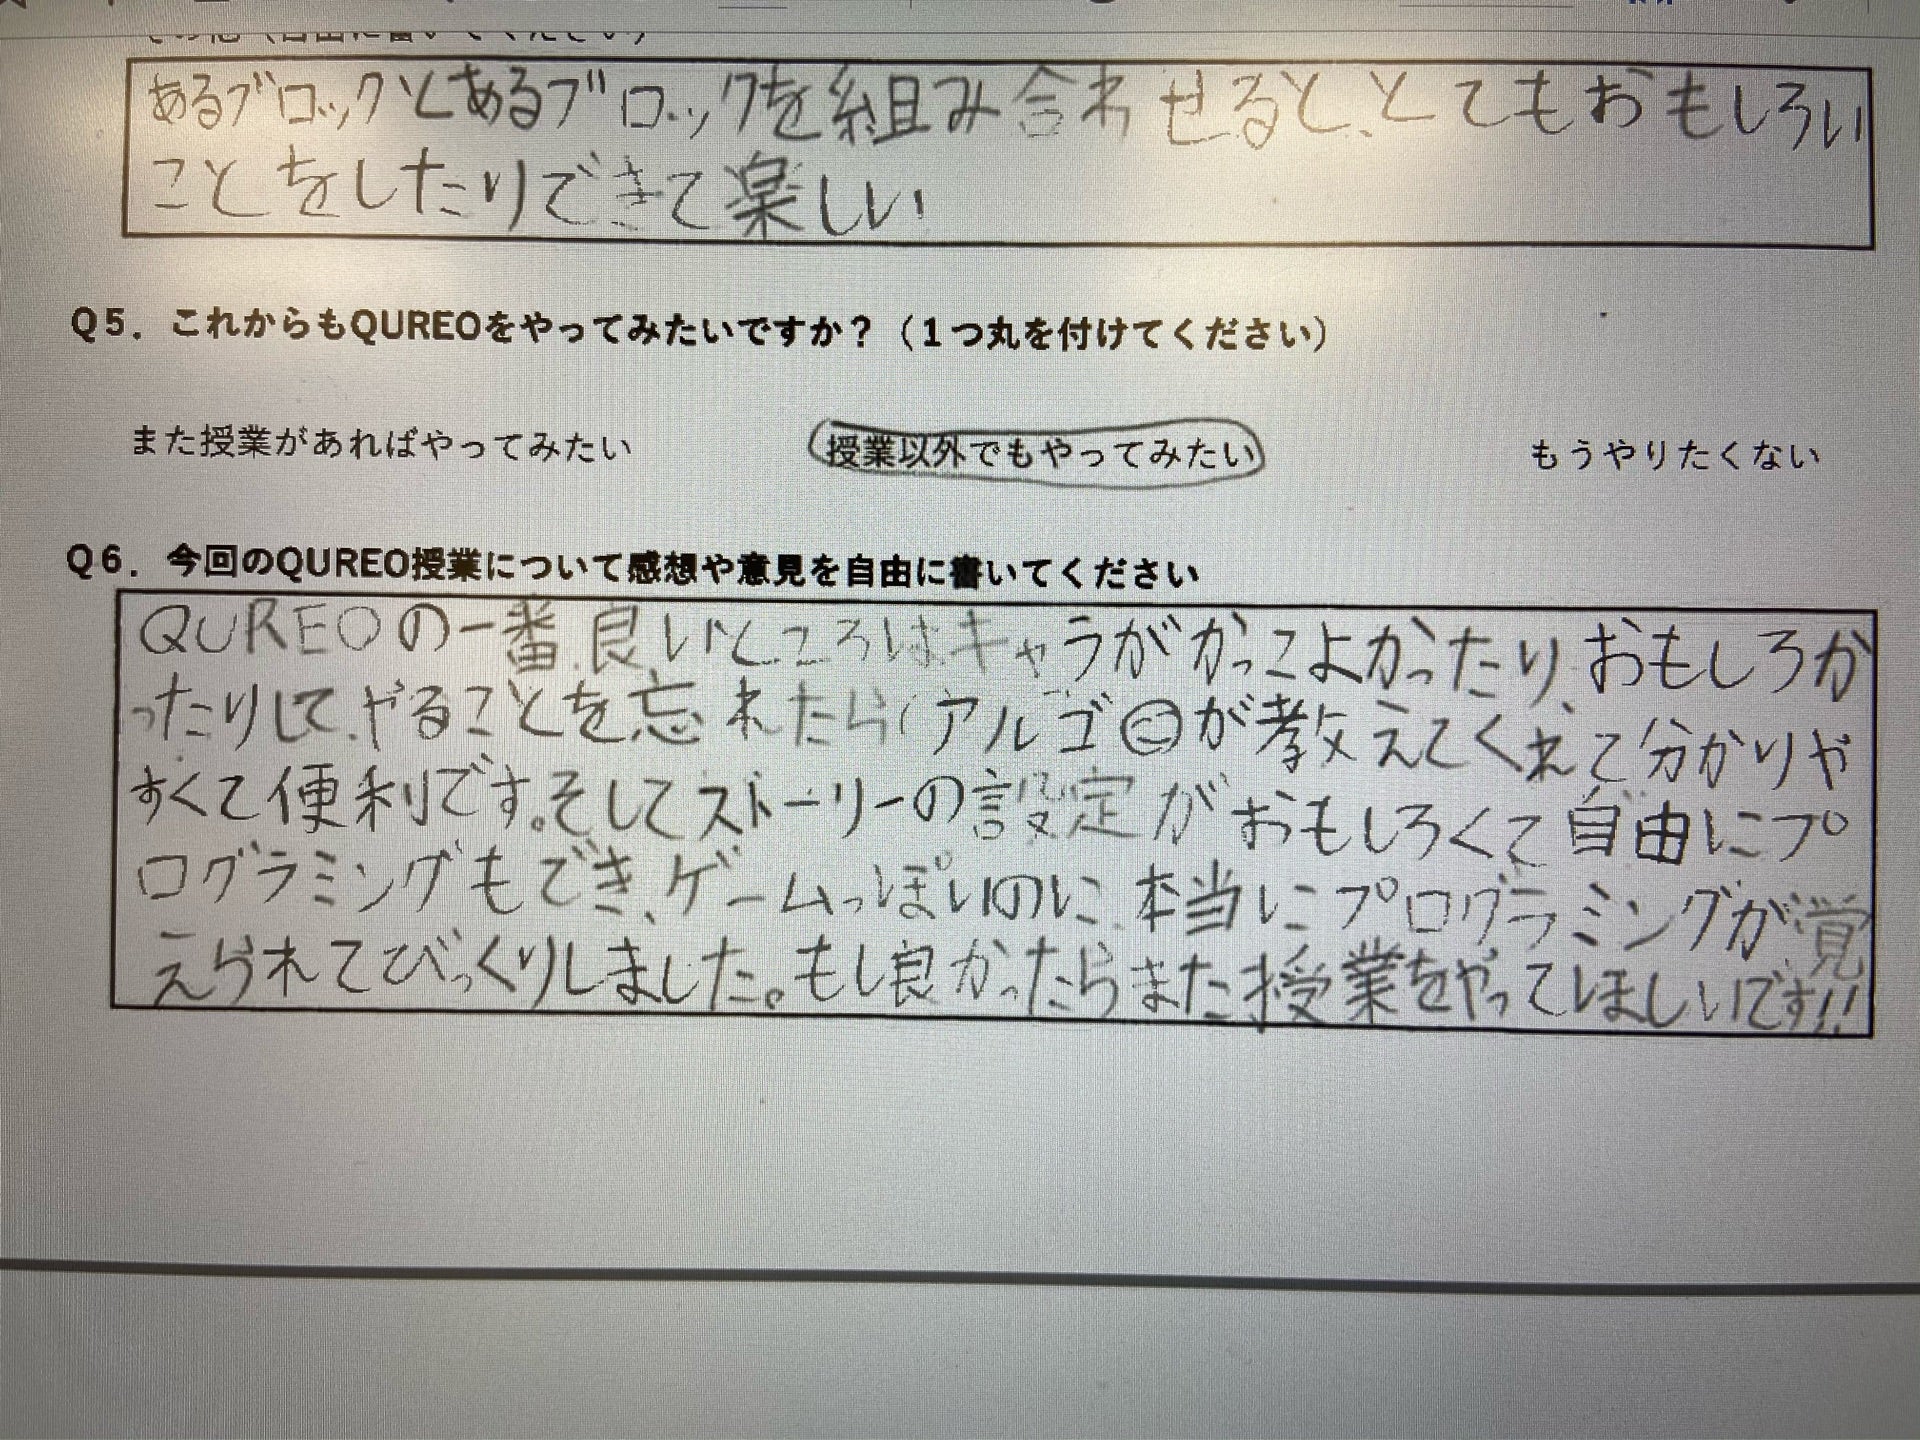 その他（自由に書いてください）
あるブロックとあるブロックを組み合わせると、とてもおもしろい
ことをしたりできて楽しい
Q5．これからもQUREOをやってみたいですか？（1つ丸を付けてください）
また授業があればやってみたい 授業以外でもやってみたい もうやりたくない
Q6．今回のQUREO授業について感想や意見を自由に書いてください
QUREOの一番良いところはキャラがかっこよかったり、おもしろか
ったりして、やることを忘れたら(アルゴ☺が教えてくれて分かりや
すくて便利です。そしてストーリーの設定がおもしろくて自由にプ
ログラミングもでき、ゲームっぽいのに、本当にプログラミングが覚
えられてびっくりしました。もし良かったらまた授業をやってほしいです!!